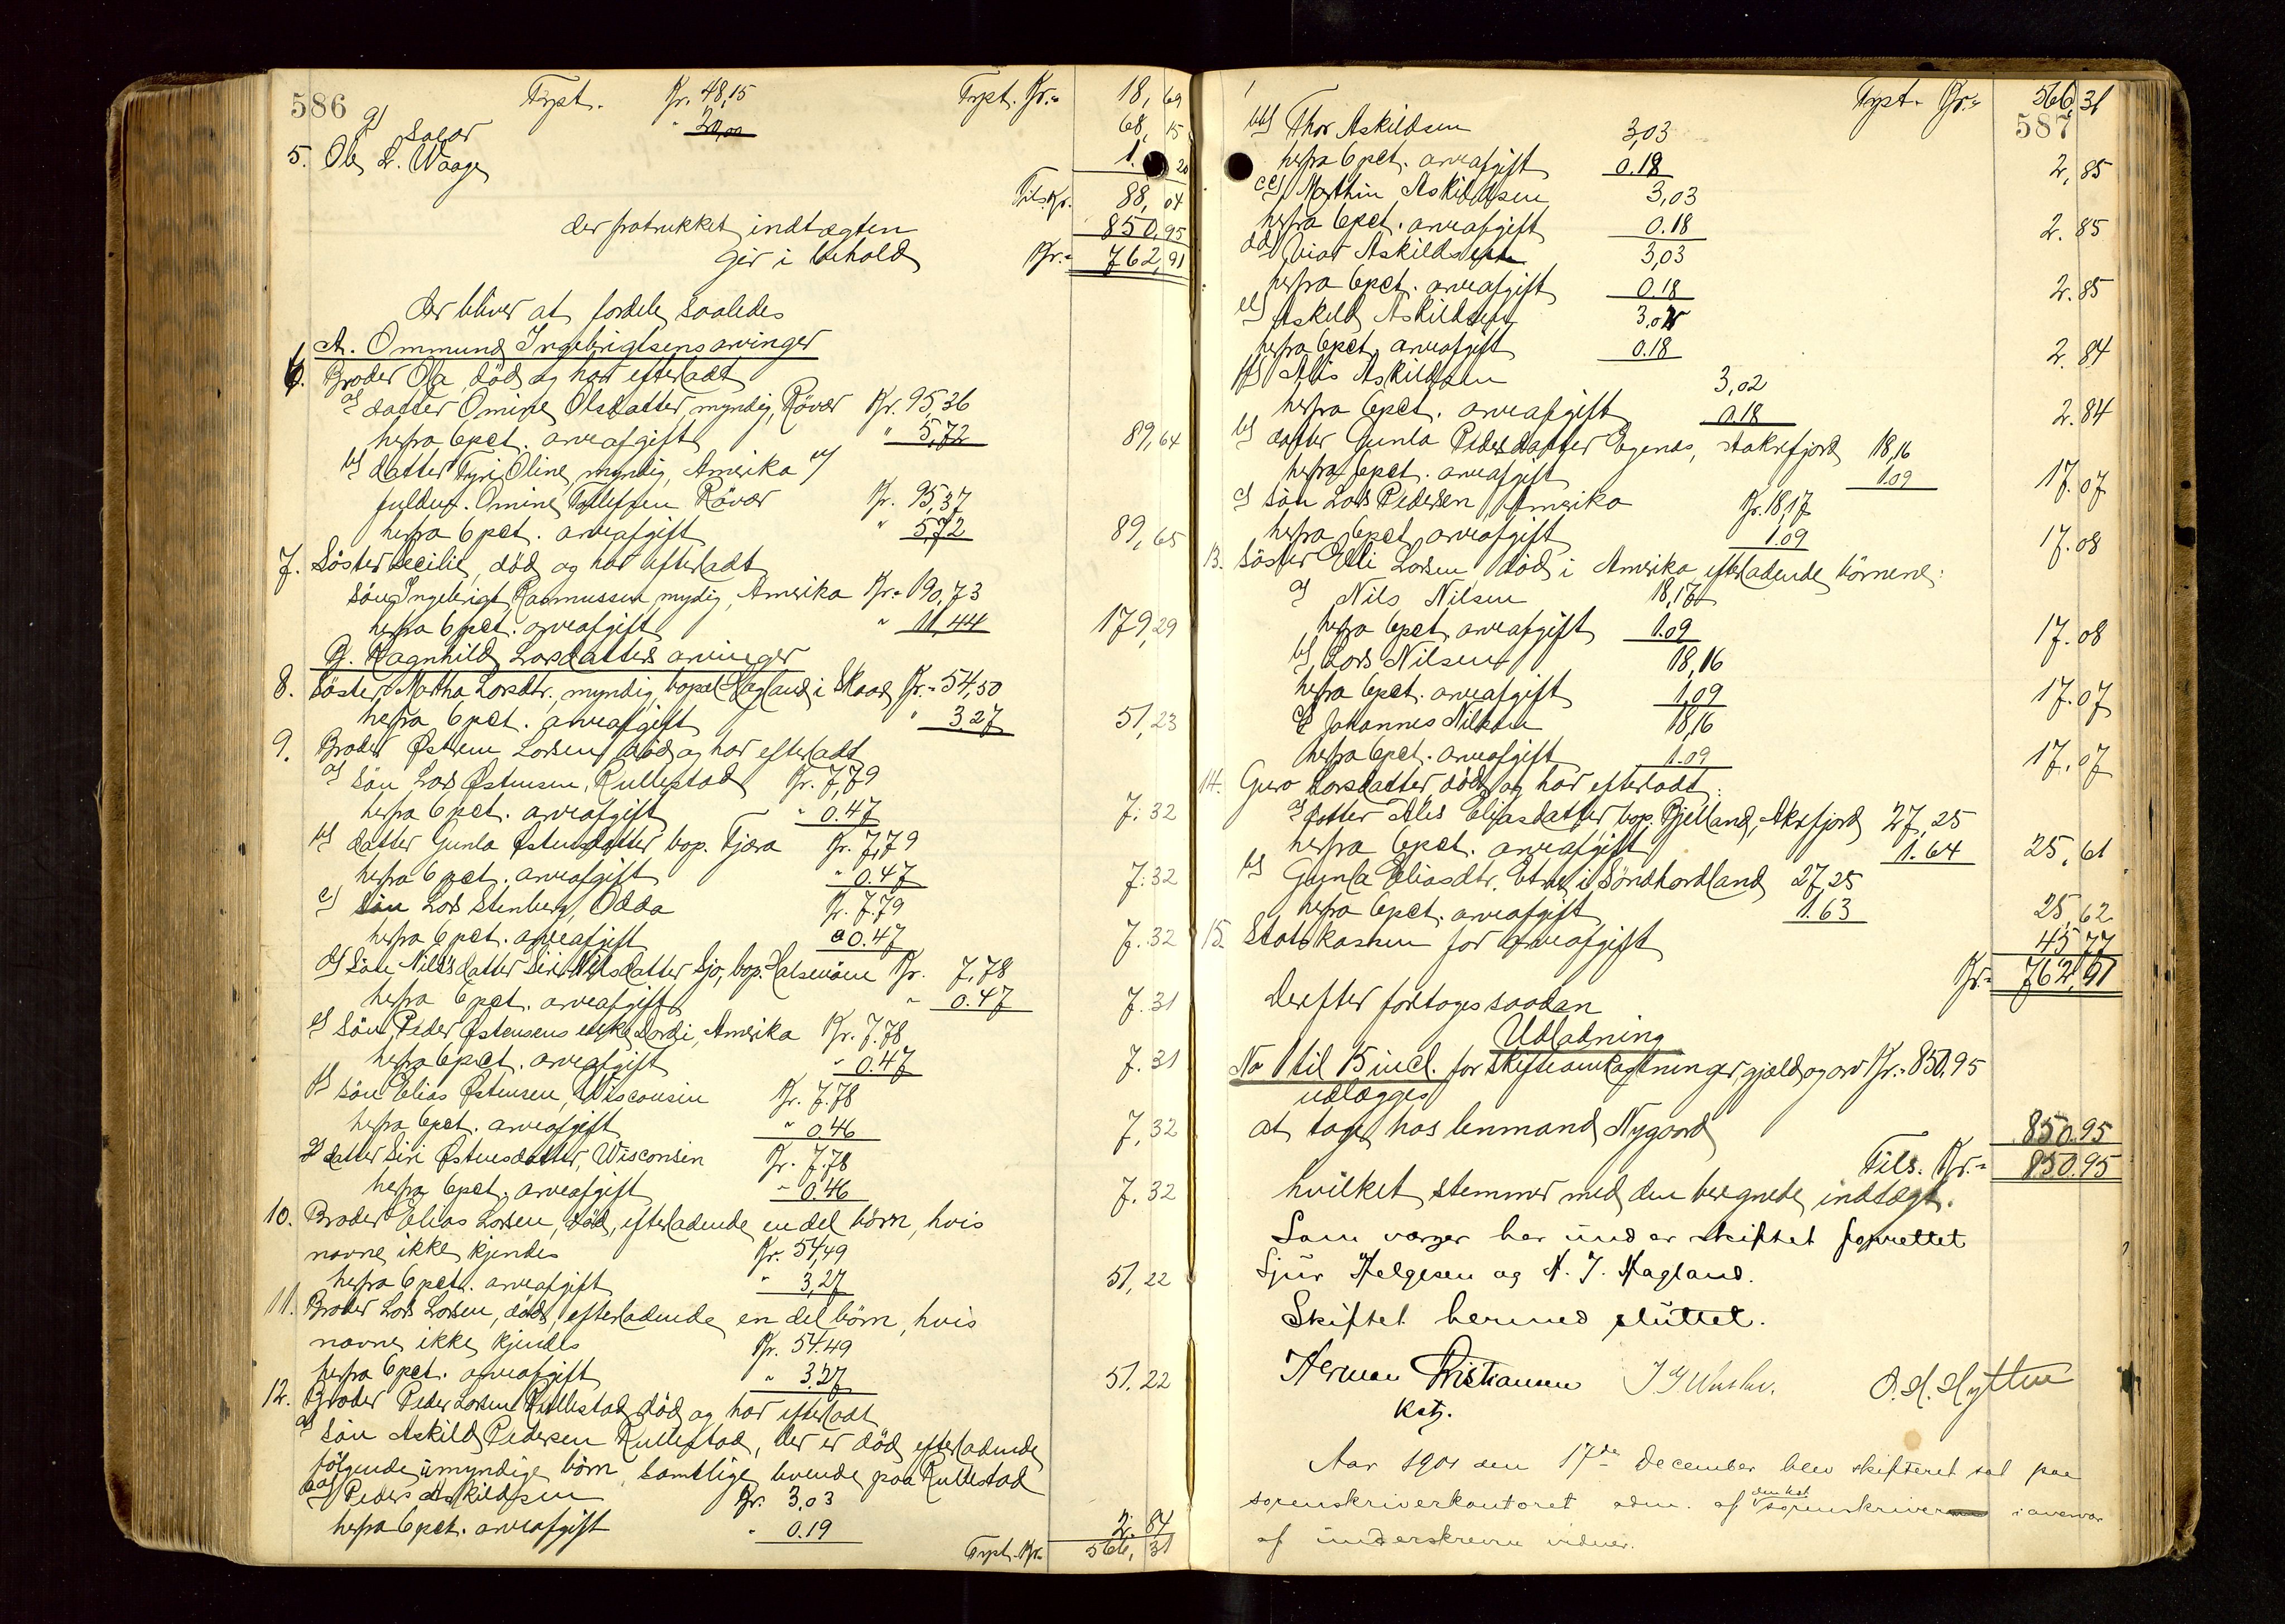 586
Trpt. Kr. 48,15 Trpt. Kr. 18,69
g) Salær " 20,00 68,15
5. Ole L. Waage 1.20
Tils. Kr. 88,04
der fratrukket indtægten 850,95
gir i behold Kr. 762,91
der bliver at fordele saaledes
A. Ommund Ingebrigtsens arvinger
6. Broder Ola, död og har efterladt
a) datter Omine Olsdatter, myndig, Rövær Kr. 95,36
herfra 6 pct. arveafgift " 5,72 89,64
b) datter Oline, myndig, Amerika
fuldm. Omine Tollefsen Rövær Kr. 95,37
herfra 6 pct. arveafgift " 5,72 89,65
7. Söster Cecilie, död og har efterladt
sön Ingebrigt Rasmussen, mydig, Amerika Kr. 190,73
herfra 6 pct. arveafgift " 11,44 179,29
B. Ragnhild Larsdatters arvinger
8. Söster Martha Larsdtr. myndig, bopæl Hagland i Skaare Kr. 54,50
herfra 6 pct. arveafgift " 3.27 51,23
9. Broder Østen Larsen, död og har efterladt
a) sön Lars Østensen, Rullestad Kr. 7,79
herfra 6 pct. arveafgift " 0.47 7.32
b) datter Gunla Østensdatter bop. Fjæra Kr. 7,79
herfra 6 pct. arveafgift " 0.47 7.32
c) sön Lars Stenberg, Odda Kr. 7.79
herfra 6 pct. arveafgift 0.47 7.32
d) Sön Nils's datter Siri Nilsdatter Sjo, bop. Halsenöen Kr. 7,78
herfra 6 pct. arveafgift " 0.47 7.31
e) sön Peder Østensens enke Dordi, Amerika Kr. 7.78
herfra 6 pct. arveafgift " 0.47 7.31
f) sön Elias Østensen, Wisconsin Kr. 7.78
herfra 6 pct. arveafgift " 0.46 7,32
g) datter Siri Østensdatter, Wisconsin Kr. 7.78
herfra 6 pct. arveafgift " 0.46 7.32
10. Broder Elias Larsen, död, efterladende en del börn, hvis
navne ikke kjendes Kr. 54,49
herfra 6 pct. arveafgift " 3,27 51,22
11. Broder Lars Larsen, död, efterladende en del börn, hvis
navne ikke kjendes Kr. 54.49
herfra 6 pct. arveafgift " 3.27 51.22
12. Broder Peder Larsen Rullestad död og har efterladt
a) sön Askild Pedersen Rullestad, der er död efterladende
fölgende umyndige börn, samtlige boende paa Rullestad
aa) Peder Askildsen Kr. 3.03
herfra 6 pct. arveafgift " 0.19 2.84
Trpt. Kr. 566,31
Trpt. Kr. 566,31
587
bb) Thor Askildsen 3,03
herfra 6 pct. arveafgift 0.18 2,85
cc) Marthin Askildsen 3,03
herfra 6 pct. arveafgift 0.18 2.85
dd) Askildsen 3,03
herfra 6 pct. arveafgift 0.18 2.85
ee) Askild Askildsen 3,02
herfra 6 pct. arveafgift 0.18 2.84
ff) Askildsen 3,02
herfra 6 pct. arveafgift 0.18 2.84
b) datter Gunla Pedersdatter Egenes, Aakrefjord 18,16
herfra 6 pct. arveafgift 1.09 17.07
c) sön Lars Pedersen, Amerika Kr. 18,17
herfra 6 pct. arveafgift 1.09 17.08
13. Söster Elli Larsen, död i Amerika, efterladende börnene:
a) Nils Nilsen 18,17
herfra 6 pct. arveafgift 1.09 17.08
b) Lars Nilsen 18,16
herfra 6 pct. arveafgift 1,09 17.07
c) Johannes Nilsen 18,16
herfra 6 pct. arveafgift 1.09 17.07
14. Guro Larsdatter, död og har efterladt:
a) datter Ales Eliasdatter bop. Bjelland, Akrefjord 27,25
herfra 6 pct. arveafgift 1.64 25,61
b) Gunla Eliasdtr. Etne i Söndhordland 27,25
herfra 6 pct. arveafgift 1.63 25,62
15. Statskassen for arveafgift 45,77
Kr. 762,91
Derefter foretages saadan
Udlodning
No 1 til 15 incl. for skifteomkostninger, gjæld og arv Kr. 850.95
udlægges
at tage hos lensmand Nygaard 850.95
Tils. Kr. 850.95
hvilket stemmer med den beregnede indtægt.
Som værger har under skiftet fungeret
Sjur Helgesen og N. J. Hagland.
Skiftet hermed sluttet.
Herman Kristiansen
Kst.
O. H. Hytten
Aar 1901 den 17de December blev skifteret sat paa
sorenskriverkontoret adm. af den kst. sorenskriver i overvær
af underskrevne vidner.